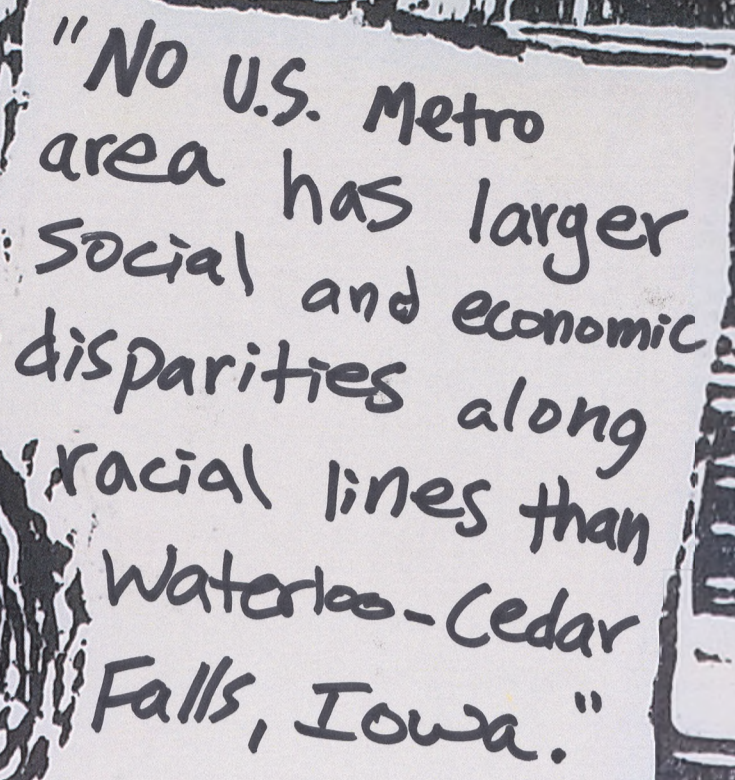 "No U.S. Metro
area has larger
social and economic
disparities along
racial lines than
Waterloo-Cedar
Falls, Iowa."